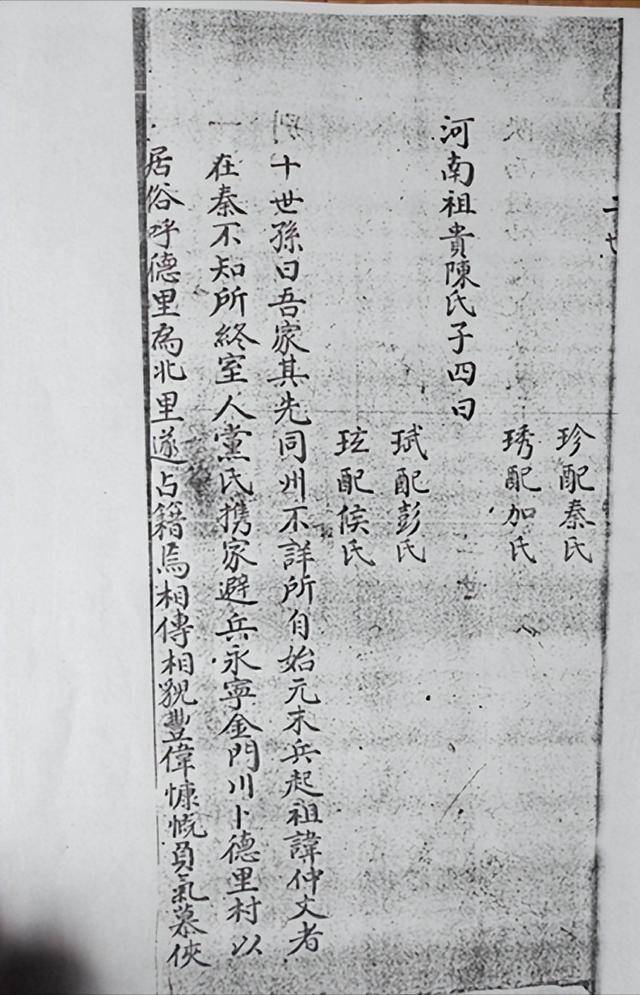 二世
珍配秦氏
琇配加氏
河南祖貴陳氏子四曰
珷配彭氏
玹配侯氏
十世孫曰吾家其先同州不詳所自始元末兵起祖諱仲文者
在秦不知所終室人黨氏携家避兵永寧金門川卜德里村以
居俗呼德里為北里遂占籍焉相傳相貌豐偉慷慨負氣慕俠